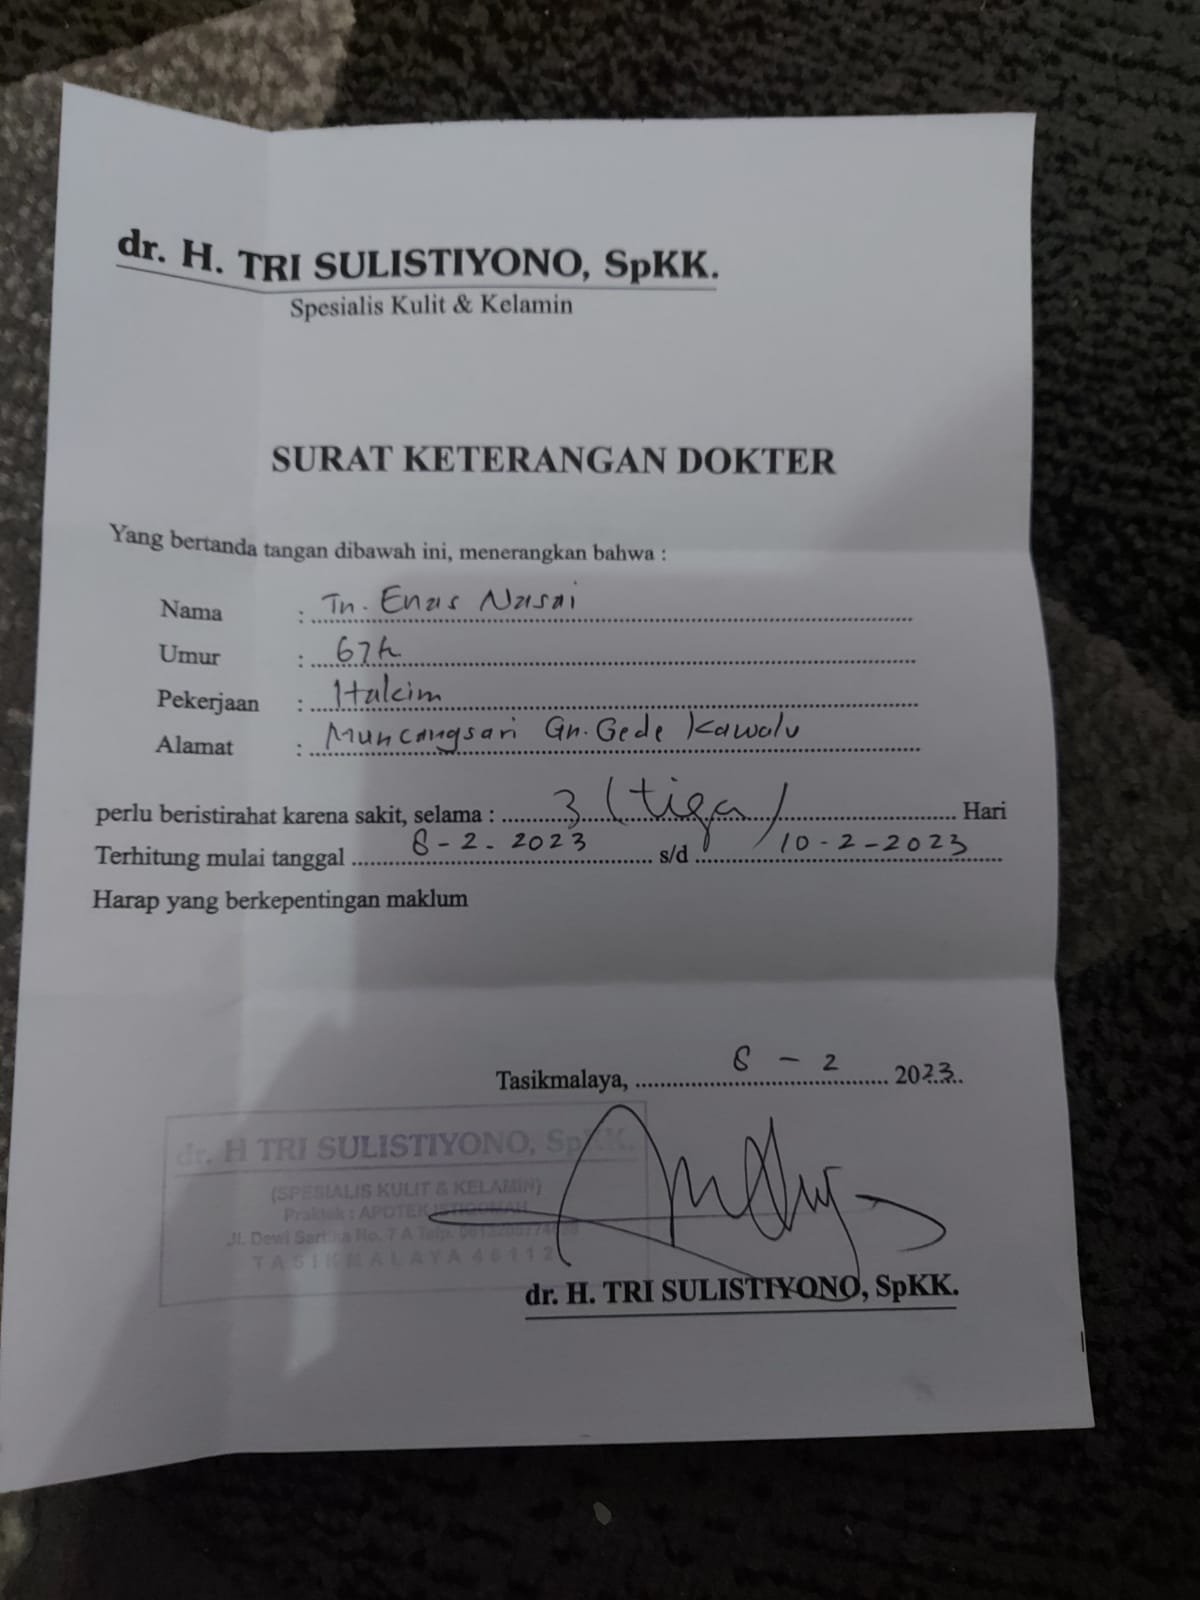 dr. H. TRI SULISTIYONO, SpKK.
Spesialis Kulit & Kelamin
SURAT KETERANGAN DOKTER
Yang bertanda tangan dibawah ini, menerangkan bahwa :
Nama : Tn. Enas Nasai
Umur : 67th
Pekerjaan : Hakim
Alamat : Muncangsari Gn. Gede Kawalu
perlu beristirahat karena sakit, selama : 3 (tiga) Hari
Terhitung mulai tanggal 8-2-2023 s/d 10-2-2023
Harap yang berkepentingan maklum
Tasikmalaya, 8 - 2 2023
dr. H TRI SULISTIYONO, SpKK.
(SPESIALIS KULIT & KELAMIN)
Praktek : APOTEK ISTIQOMAH
Jl. Dewi Sartika No. 7 A Telp.
TASIKMALAYA 46112
dr. H. TRI SULISTIYONO, SpKK.